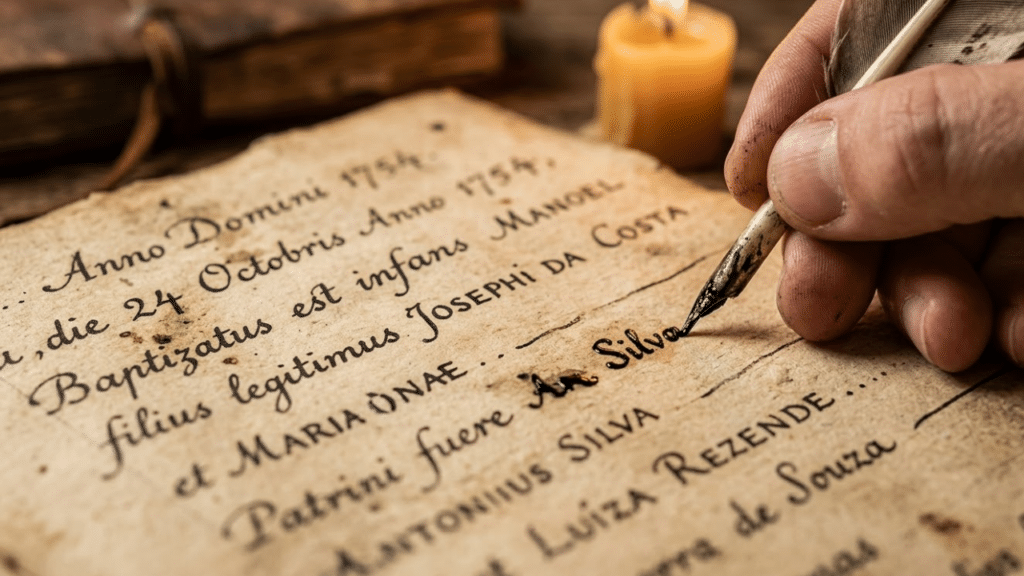 Anno Domini 1754.
die 24 Octobris Anno 1754,
Baptizatus est infans MANOEL
filius legitimus JOSEPHI DA COSTA
et MARIA
Patrini fuere Silva
ANTONIUS SILVA
LUÍZA REZENDE
de Souza